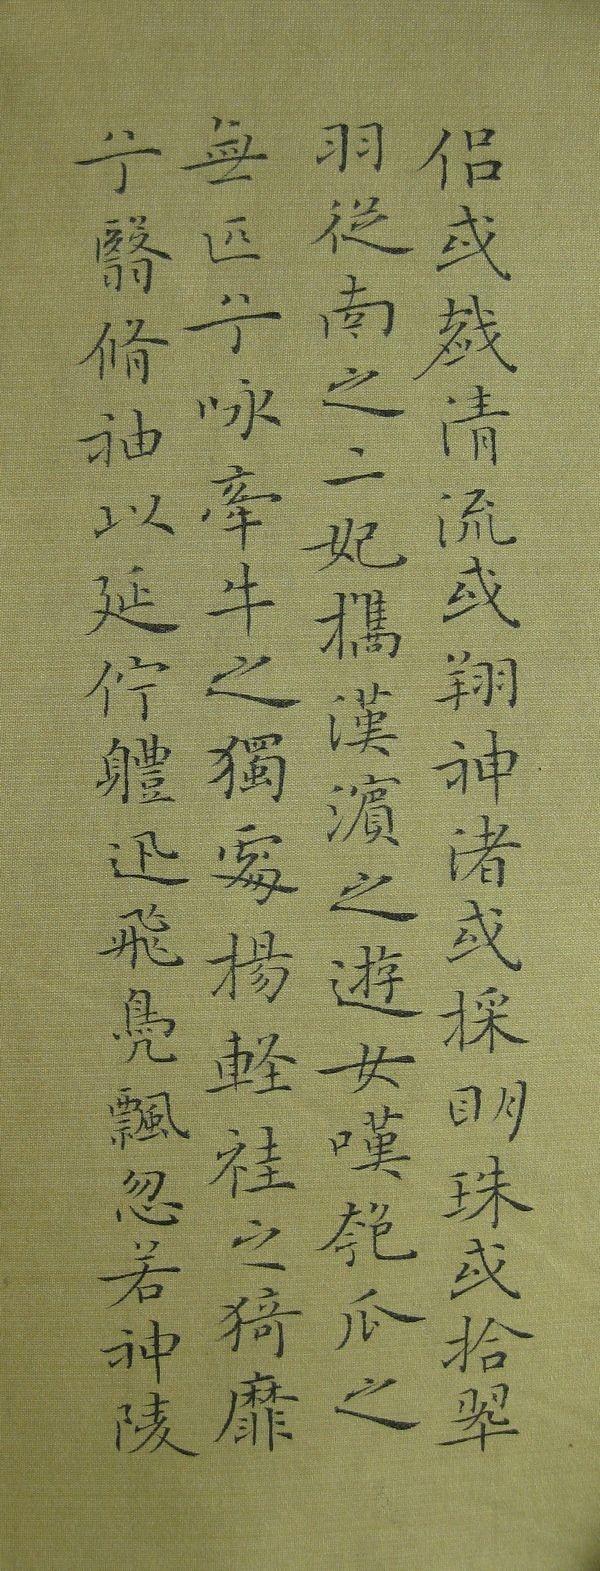 侶或戲清流或翔神渚或採明珠或拾翠
羽從南之二妃攜漢濱之遊女嘆匏瓜之
無匹兮咏牽牛之獨處揚軽袿之猗靡
兮翳脩袖以延佇體迅飛鳧飄忽若神陵